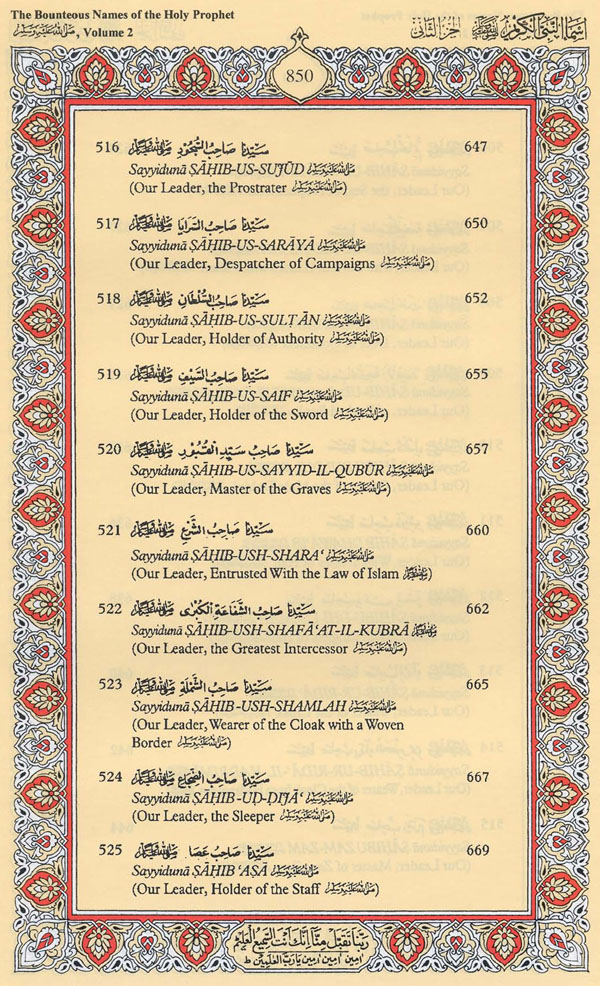 The Bounteous Names of the Holy Prophet
ﷺ, Volume 2
اسماء النبی الکریم ﷺ الجزء الثانی
850
516 سَيِّدُنَا صَاحِبُ السُّجُوْدِ ﷺ 647
Sayyidunā ṢĀḤIB-US-SUJŪD ﷺ
(Our Leader, the Prostrater ﷺ)
517 سَيِّدُنَا صَاحِبُ السَّرَايَا ﷺ 650
Sayyidunā ṢĀḤIB-US-SARĀYĀ ﷺ
(Our Leader, Despatcher of Campaigns ﷺ)
518 سَيِّدُنَا صَاحِبُ السُّلْطَانِ ﷺ 652
Sayyidunā ṢĀḤIB-US-SULṬĀN ﷺ
(Our Leader, Holder of Authority ﷺ)
519 سَيِّدُنَا صَاحِبُ السَّيْفِ ﷺ 655
Sayyidunā ṢĀḤIB-US-SAIF ﷺ
(Our Leader, Holder of the Sword ﷺ)
520 سَيِّدُنَا صَاحِبُ سَيِّدِ الْقُبُوْرِ ﷺ 657
Sayyidunā ṢĀḤIB-US-SAYYID-IL-QUBŪR ﷺ
(Our Leader, Master of the Graves ﷺ)
521 سَيِّدُنَا صَاحِبُ الشَّرَعِ ﷺ 660
Sayyidunā ṢĀḤIB-USH-SHARA‘ ﷺ
(Our Leader, Entrusted With the Law of Islam ﷺ)
522 سَيِّدُنَا صَاحِبُ الشَّفَاعَةِ الْكُبْرٰى ﷺ 662
Sayyidunā ṢĀḤIB-USH-SHAFĀ‘AT-IL-KUBRĀ ﷺ
(Our Leader, the Greatest Intercessor ﷺ)
523 سَيِّدُنَا صَاحِبُ الشَّمْلَةِ ﷺ 665
Sayyidunā ṢĀḤIB-USH-SHAMLAH ﷺ
(Our Leader, Wearer of the Cloak with a Woven
Border ﷺ)
524 سَيِّدُنَا صَاحِبُ الضِّجَاعِ ﷺ 667
Sayyidunā ṢĀḤIB-UD-DIJĀ‘ ﷺ
(Our Leader, the Sleeper ﷺ)
525 سَيِّدُنَا صَاحِبُ عَصَا ﷺ 669
Sayyidunā ṢĀḤIB ‘AṢĀ ﷺ
(Our Leader, Holder of the Staff ﷺ)
رَبَّنَا تَقَبَّلْ مِنَّا اِنَّكَ اَنْتَ السَّمِيْعُ الْعَلِيْمُ
اٰمِين اٰمِين اٰمِين يَارَبَّ الْعٰلَمِيْنَ ط